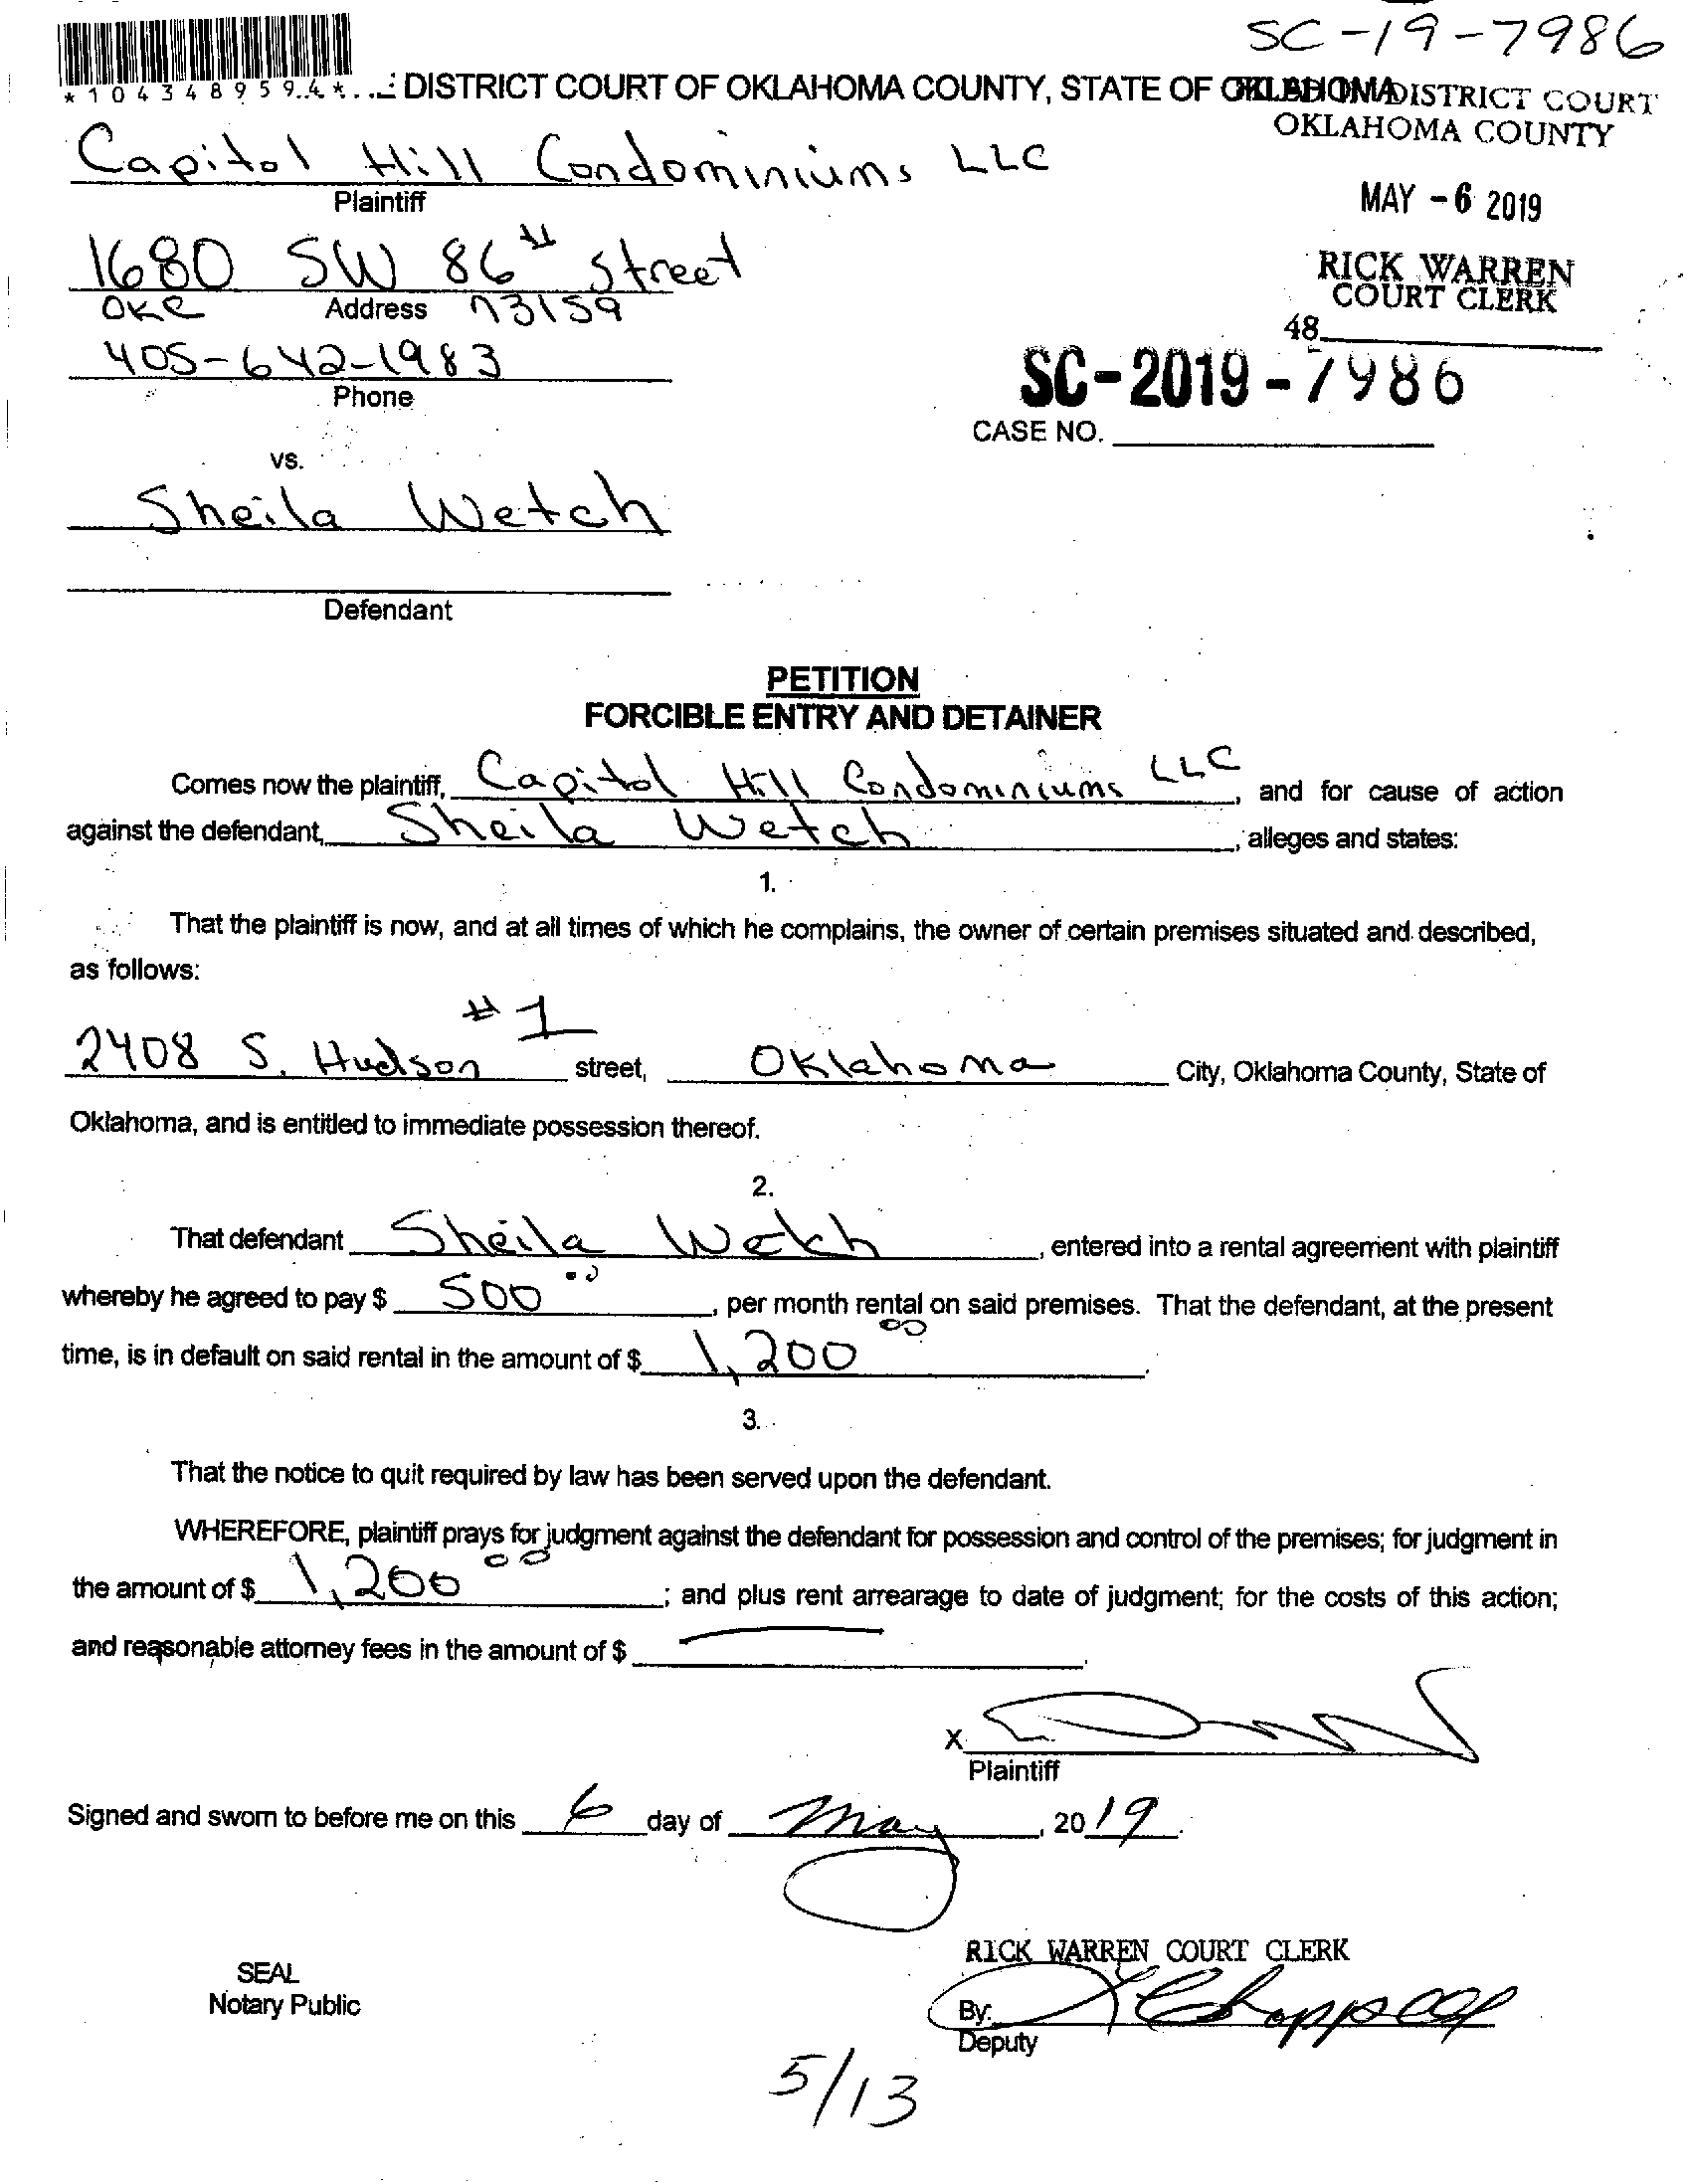 SC-19-7986
*1043489594*
DISTRICT COURT OF OKLAHOMA COUNTY, STATE OF OKLAHOMA
DISTRICT COURT
OKLAHOMA COUNTY
Capitol Hill Condominiums LLC
Plaintiff
MAY - 6 2019
1680 SW 86th Street
RICK WARREN
COURT CLERK
OKC Address 73159
48
405-642-1983
SC-2019-7986
Phone
CASE NO.
vs.
Sheila Wetch
Defendant
PETITION
FORCIBLE ENTRY AND DETAINER
Comes now the plaintiff, Capitol Hill Condominiums LLC, and for cause of action
against the defendant, Sheila Wetch, alleges and states:
1.
That the plaintiff is now, and at all times of which he complains, the owner of certain premises situated and described,
as follows:
2408 S. Hudson #1 street, Oklahoma City, Oklahoma County, State of
Oklahoma, and is entitled to immediate possession thereof.
2.
That defendant Sheila Wetch, entered into a rental agreement with plaintiff
whereby he agreed to pay $ 500.00, per month rental on said premises. That the defendant, at the present
time, is in default on said rental in the amount of $ 1,200 00.
3.
That the notice to quit required by law has been served upon the defendant.
WHEREFORE, plaintiff prays for judgment against the defendant for possession and control of the premises; for judgment in
the amount of $ 1,200 00; and plus rent arrearage to date of judgment; for the costs of this action;
and reasonable attorney fees in the amount of $
X
Plaintiff
Signed and sworn to before me on this 6 day of May, 2019.
RICK WARREN COURT CLERK
SEAL
Notary Public
By:
Deputy
5/13